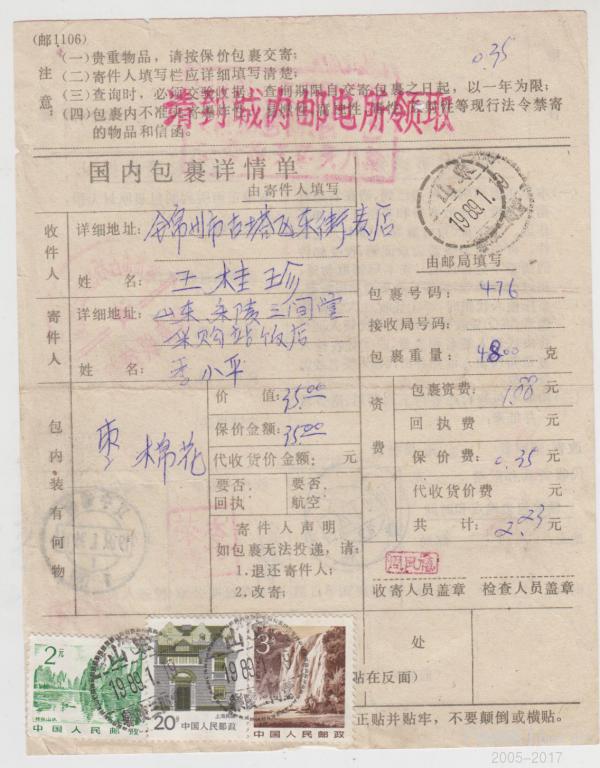 (邮1106)
注意:
(一)贵重物品，请按保价包裹交寄；
(二)寄件人填写栏应详细填写清楚；
(三)查询时，必须交验收据，查询期限自交寄包裹之日起，以一年为限；
(四)包裹内不准
等现行法令禁寄
的物品和信函。
0.35
请到城内邮电所领取
国内包裹详情单
由寄件人填写
山东
1989.1.
收件人
详细地址：锦州市古塔区
姓 名：王桂珍
寄件人
详细地址：山东 三间堂
采购站饭店
姓 名：李小平
由邮局填写
包裹号码：476
接收局号码：
包裹重量：4800 克
包内装有何物
枣 棉花
价 值：35.00
保价金额：35.00
代收货价金额： 元
要否回执
要否航空
寄件人声明
如包裹无法投递，请：
1.退还寄件人；
2.改寄：
资费
包裹资费：1.88 元
回执费 元
保价费：0.35 元
代收货价费 元
共 计：2.23 元
收寄人员盖章
检查人员盖章
处
贴在反面)
正贴并贴牢，不要颠倒或横贴。
2元
桂林山水
中国人民邮政
上海民居
20分
中国人民邮政
3
中国人民邮政
山东
1989.1.
山东
1989.1.
2005-2017